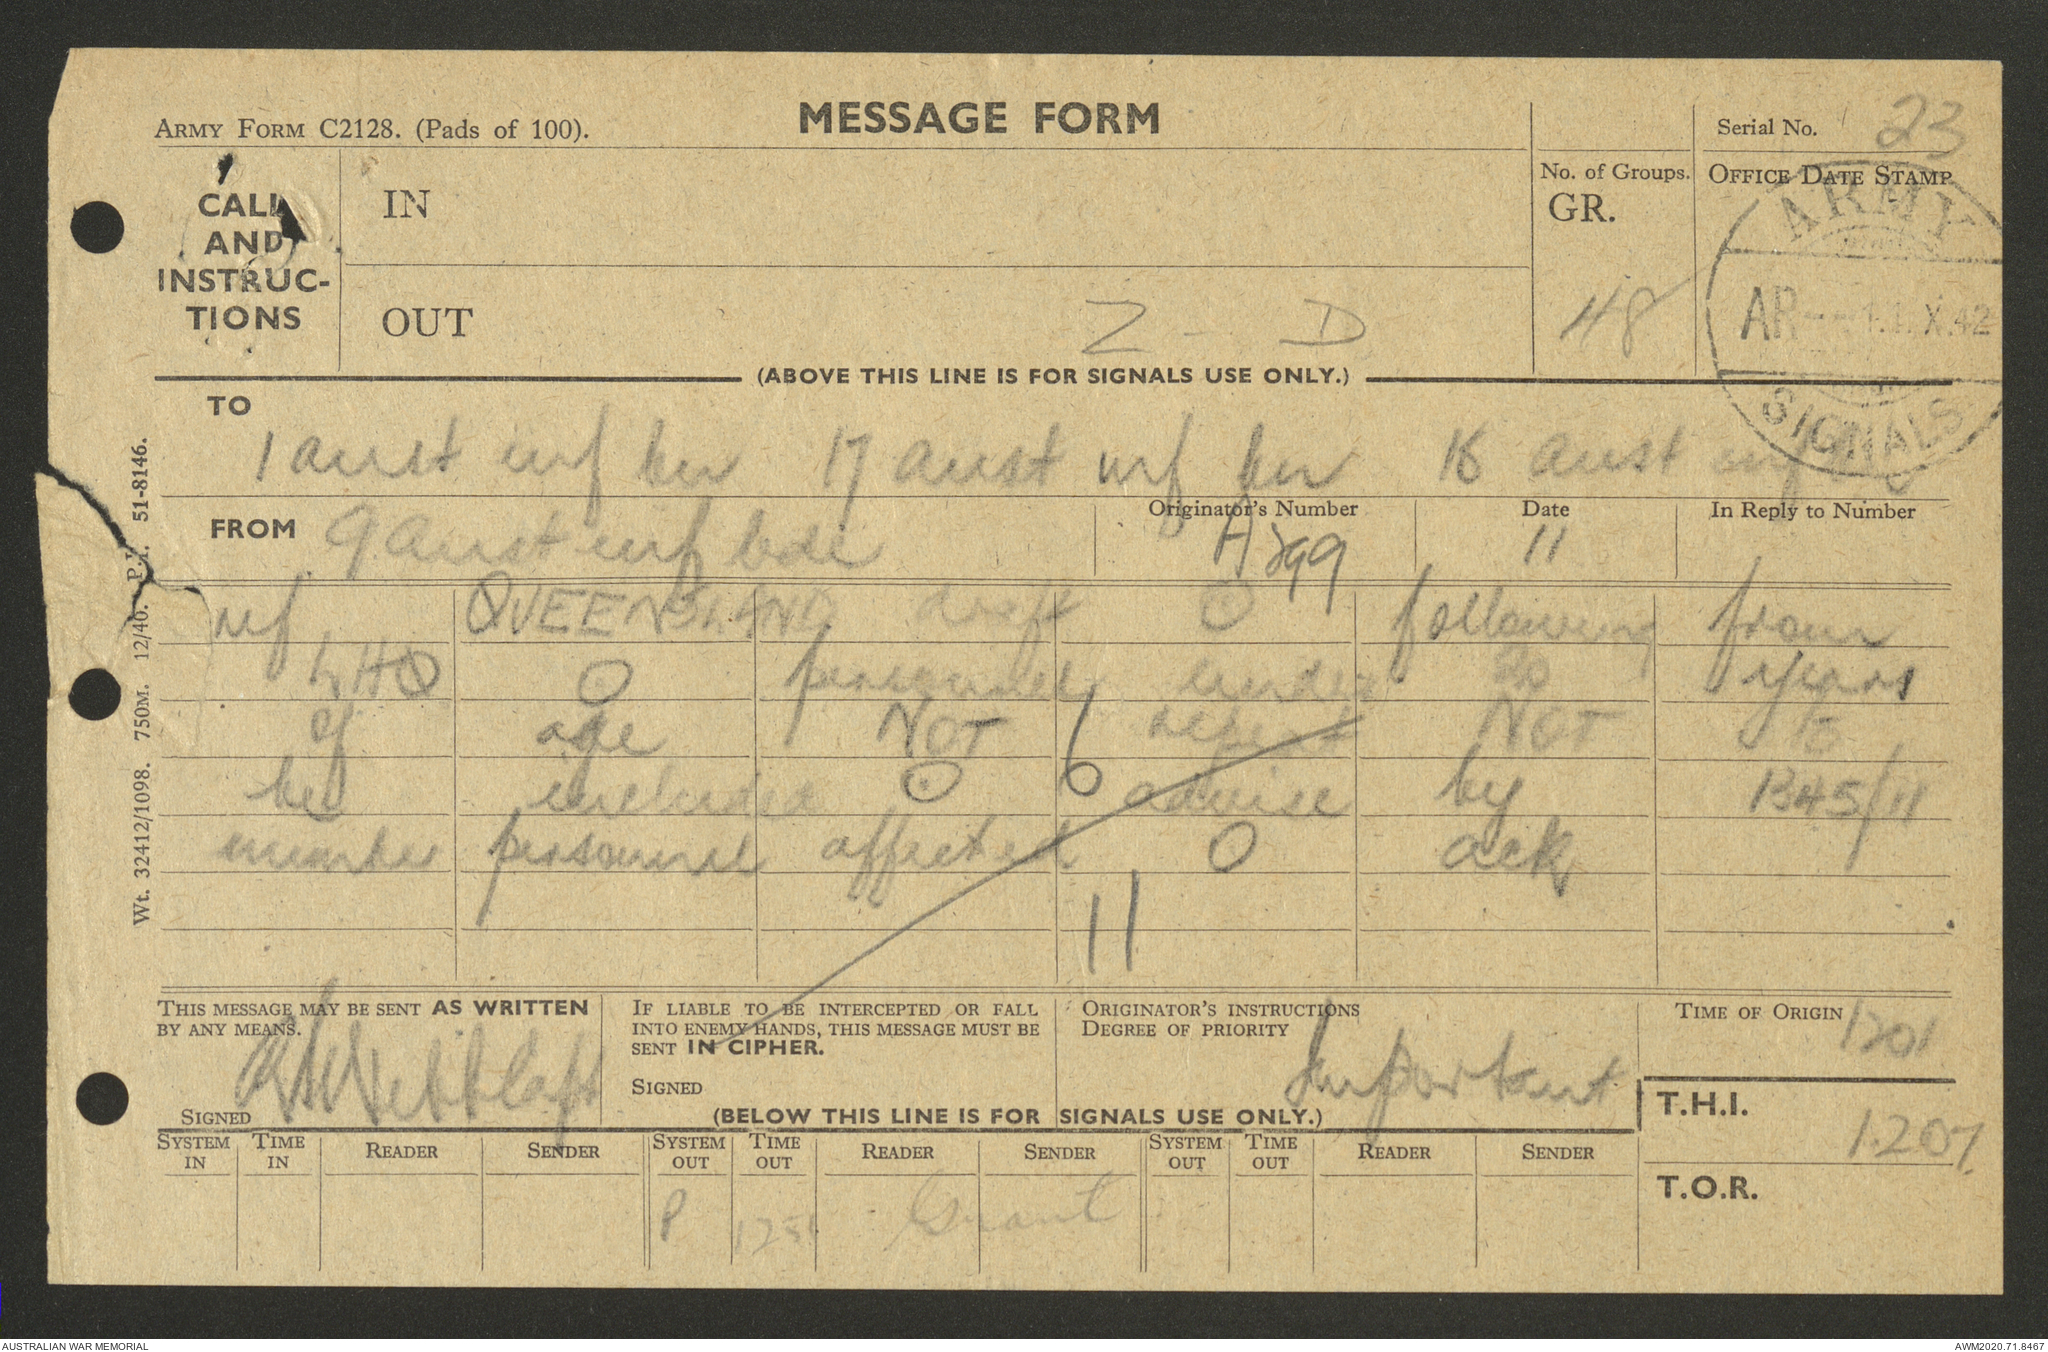 MESSAGE FORM
ARMY FORM C2128. (Pads of 100).
Serial No. 23
CALL AND INSTRUC-TIONS
IN
OUT Z - D
No. of Groups. GR. 48
OFFICE DATE STAMP
ARMY
AR 11.X.42
SIGNALS
(ABOVE THIS LINE IS FOR SIGNALS USE ONLY.)
TO
1 aust inf bn 17 aust inf bn 16 aust inf
FROM 9 aust inf bde
Originator's Number A299
Date 11
In Reply to Number
ref QUEENSLAND draft O following from
LHQ O personnel under 20 years
of age NOT repeat NOT to
be included O O advise by 1345/11
number personnel affected O ack
11
THIS MESSAGE MAY BE SENT AS WRITTEN
BY ANY MEANS.
SIGNED
IF LIABLE TO BE INTERCEPTED OR FALL
INTO ENEMY HANDS, THIS MESSAGE MUST BE
SENT IN CIPHER.
SIGNED
ORIGINATOR'S INSTRUCTIONS
DEGREE OF PRIORITY
Important
TIME OF ORIGIN 1201
T.H.I. 1207
T.O.R.
(BELOW THIS LINE IS FOR SIGNALS USE ONLY.)
SYSTEM IN TIME IN READER SENDER SYSTEM OUT TIME OUT READER SENDER SYSTEM OUT TIME OUT READER SENDER
P Grant
Wt. 32412/1098. 750M. 12/40. P.I. 51-8146.
AUSTRALIAN WAR MEMORIAL
AWM2020.71.8467